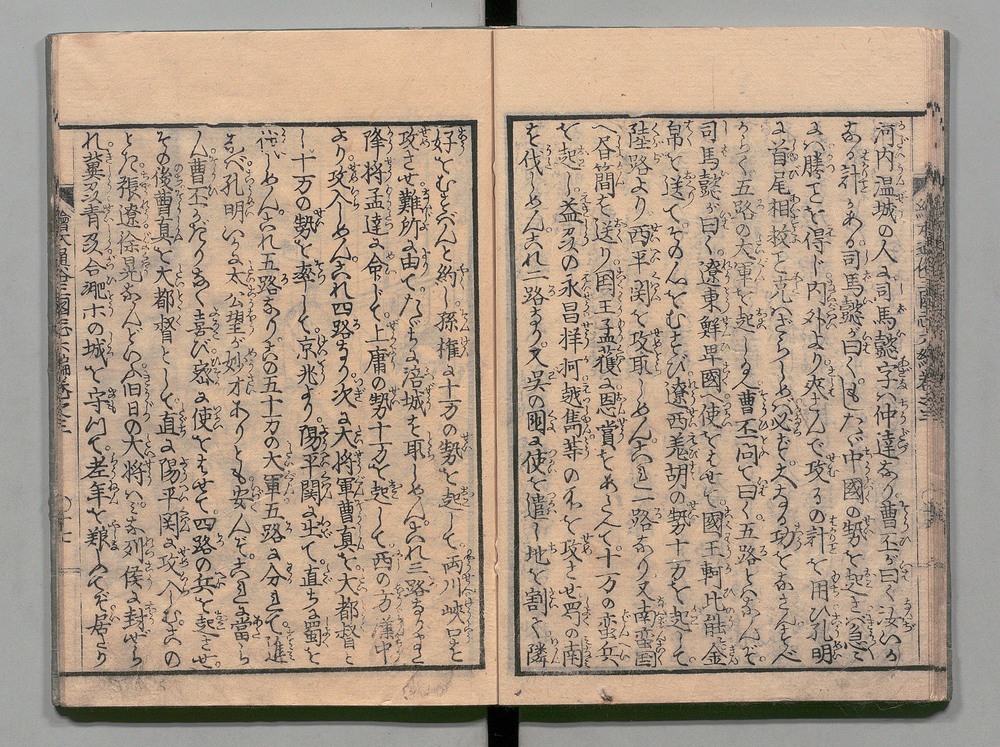 河内温城の人に司馬懿字は仲達なり曹丕が曰く汝いか
ある計かある司馬懿が曰くもしたゞ中國の勢を起さバ急に
ハ勝てを得ド内外より夾さんで攻るの計を用ひ孔明
に首尾相救と克ハざらしめバ必ず大なる功をなさんとべ
からく五路の大軍を起ししめん曹丕問て曰く五路とハなんぞ
司馬懿が曰く遼東鮮卑國へ使をはせて國王軻比能に金
帛を送てそのんをむすび遼西羌胡の勢十万を起して
陸路より西平関を攻取しめんこれ一路なり又南蛮国
へ呑簡を送り国王孟獲に恩賞をあたへて十万の蛮兵
を起し益州の永昌牂柯越雋等の所を攻させ蜀の南
を伐しめんこれ二路なり又呉の国に使を遣し地を割て隣
好をむすべんと約し孫権に十万の勢を起して両川峡口を
攻させ難所に由てたゞちに涪城を取しめんこれ三路なりまた
降将孟達に命じて上庸の勢十万を起して西の方漢中
より攻入しめんこれ四路なり次に大将軍曹真を大都督と
し十万の勢を率して京兆より陽平関に出て直ちに蜀を
伐しめんこれ五路なりこの五十万の大軍五路に分れて進
まバ孔明いかに太公望が妙才ありとも安んぞこれに當ら
ん曹丕かぎりなく喜び密に使をはせて四路の兵を起させ
その後曹真を大都督として直に陽平関に攻入しむこの
とき張遼徐晃なんどいふ旧日の大将ハミな列侯に封ぜら
れ冀州青州合淝ホの城を守つて老年を養んでぞ居たり
繪本通俗三國志六編巻之三